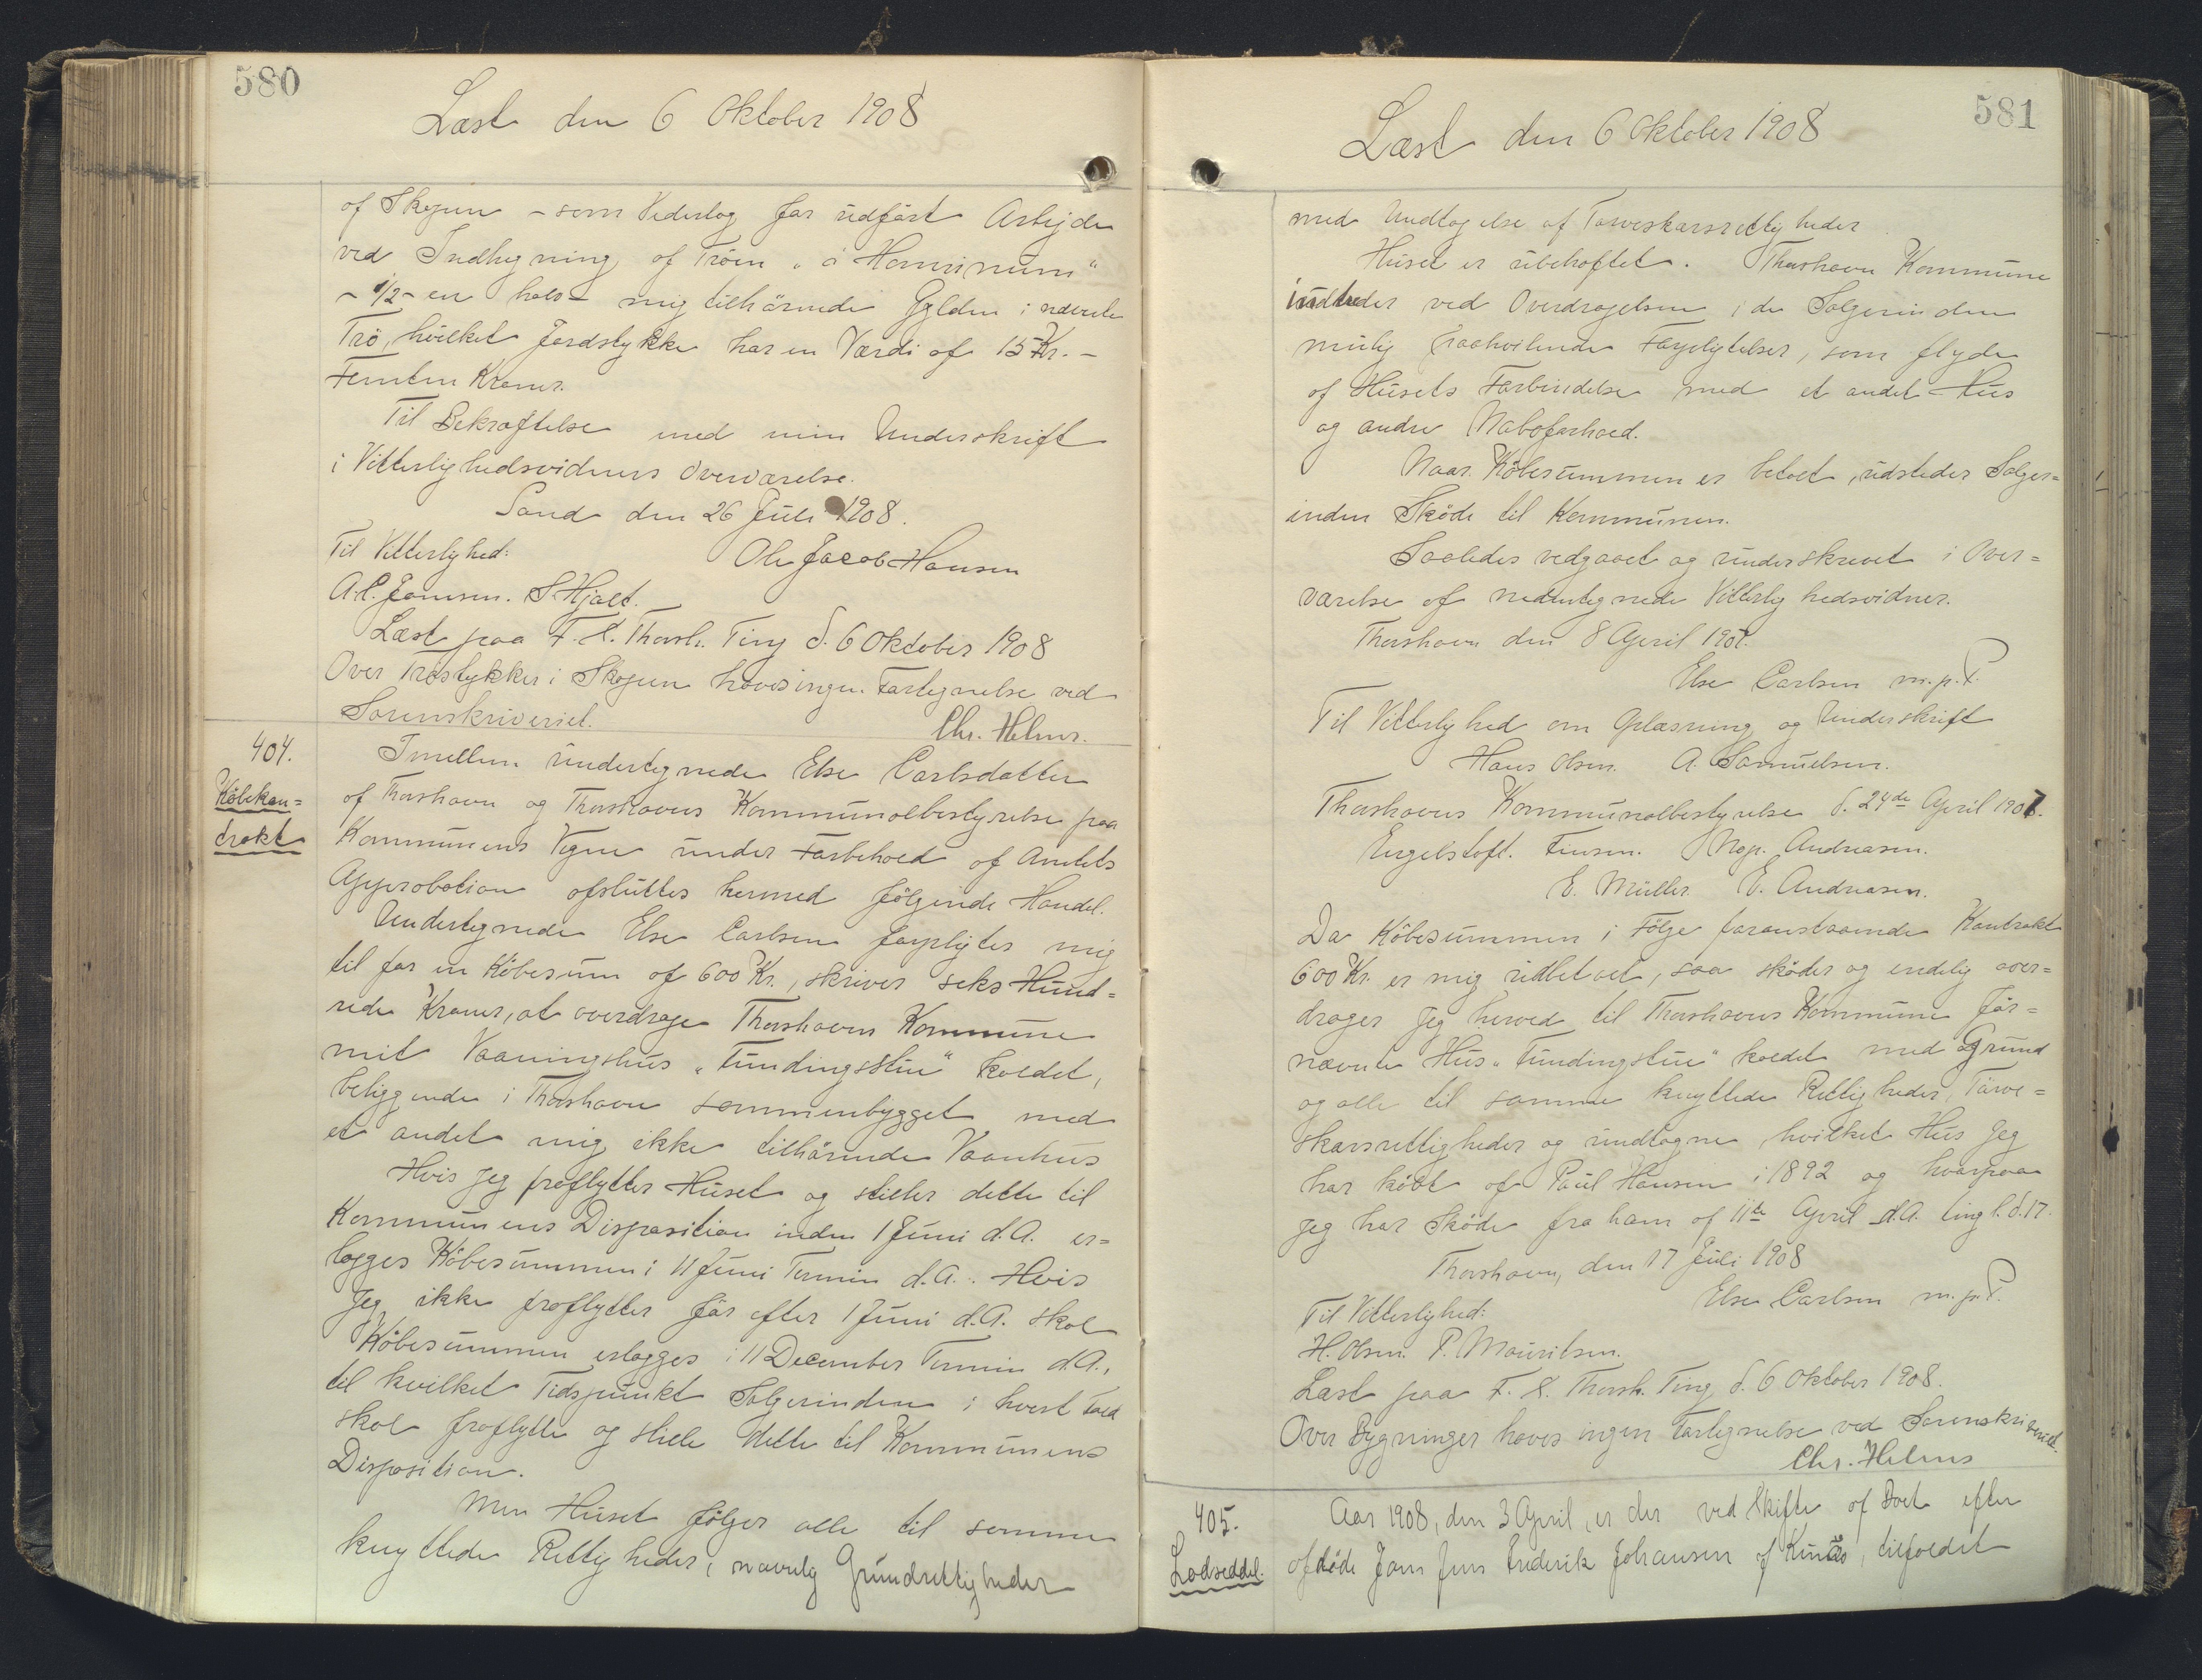 580
Læst den 6 Oktober 1908
af Skopun – som Vederlag for udført Arbejde
ved Indhegning af Trøen „á Hamrinum“
– 1/2 – en halv – mig tilhørende Gylden i nævnte
Trø, hvilket Jordstykke har en Værdi af 15 Kr. –
Femten Kroner.
Til Bekræftelse med min Underskrift
i Vitterlighedsvidners Overværelse.
Sand den 26 Juli 1908.
Til Vitterlighed: Ole Jacob Hansen
A. C. Joensen. S. Hjalt.
Læst paa F. X. Thorsh. Ting d. 6 Oktober 1908
Over Trøstykker i Skopun haves ingen Fortegnelse ved
Sorenskriveriet. Chr. Helms.
404.
Købekon=
trakt
Imellem undertegnede Else Carlsdatter
af Thorshavn og Thorshavns Kommunalbestyrelse paa
Kommunens Vegne under Forbehold af Amtets
Approbation afsluttes hermed følgende Handel.
Undertegnede Else Carlsen forpligter mig
til for en Købesum af 600 Kr., skriver seks Hund=
rede Kroner, at overdrage Thorshavns Kommune
mit Vaaningshus „Fundingsstue“ kaldet,
beliggende i Thorshavn sammenbygget med
et andet mig ikke tilhørende Vaanhus
Hvis jeg fraflytter Huset og stiller dette til
Kommunens Disposition inden 1 Juni d.A. er=
lægges Købesummen i 11 Juni Termin d.A.. Hvis
jeg ikke fraflytter før efter 1 Juni d.A. skal
Købesummen erlægges i 11 December Termin d.A.,
til hvilket Tidspunkt Sælgerinden i hvert Fald
skal fraflytte og stille dette til Kommunens
Disposition.
Men Huset følger alle til samme
knyttede Rettigheder, navnlig Grundrettigheder
581
Læst den 6 Oktober 1908
med Undtagelse af Tørveskærsrettigheder
Huset er ubehæftet. Thorshavn Kommune
indtræder ved Overdragelsen i de Sælgerinden
mulig paahvilende Forpligtelser, som flyde
af Husets Forbindelse med et andet Hus
og andre Naboforhold.
Naar Købesummen er betalt, udsteder Sælger=
inden Skøde til Kommunen.
Saaledes vedgaaet og underskrevet i Over=
værelse af nedentegnede Vitterlighedsvidner.
Thorshavn den 8 April 1907.
Else Carlsen m.p.P.
Til Vitterlighed om Oplæsning og Underskrift
Hans Olsen. A. Samuelsen.
Thorshavns Kommunalbestyrelse d. 24de April 1907.
Engelstoft. Finsen. Mop. Andreasen.
E. Müller. E. Andreasen.
Da Købesummen i Følge foranstaaende Kontrakt
600 Kr. er mig udbetalt, saa skøder og endelig over=
drager jeg herved til Thorshavns Kommune før=
nævnte Hus „Fundingstue“ kaldet med Grund
og alle til samme knyttede Rettigheder, Tørve=
skærsrettigheder og undtagne, hvilket Hus jeg
har købt af Paul Hansen i 1892 og hvorpaa
jeg har Skøde fra ham af 11te April d.A. tingl. d. 17.
Thorshavn, den 17 Juli 1908
Else Carlsen m.p.P.
Til Vitterlighed:
H. Olsen. P. Mouritsen.
Læst paa F. X. Thorsh. Ting d. 6 Oktober 1908.
Over Bygninger haves ingen Fortegnelse ved Sorenskriveriet.
Chr. Helms
405.
Lodseddel.
Aar 1908, den 3 April, er der ved Skifte af Boet efter
afdøde Joen Jens Frederik Johansen af Kunø, tilfaldet